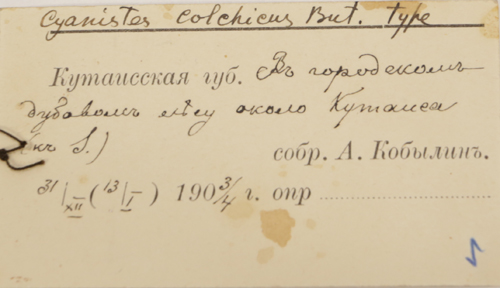 Cyanistes colchicus But. type
Кутаисская губ. Въ городскомъ
дубовомъ лѣсу около Кутаиса
(къ S.) собр. А. Кобылинъ.
31/XII (13/I) 190 3/4 г. опр